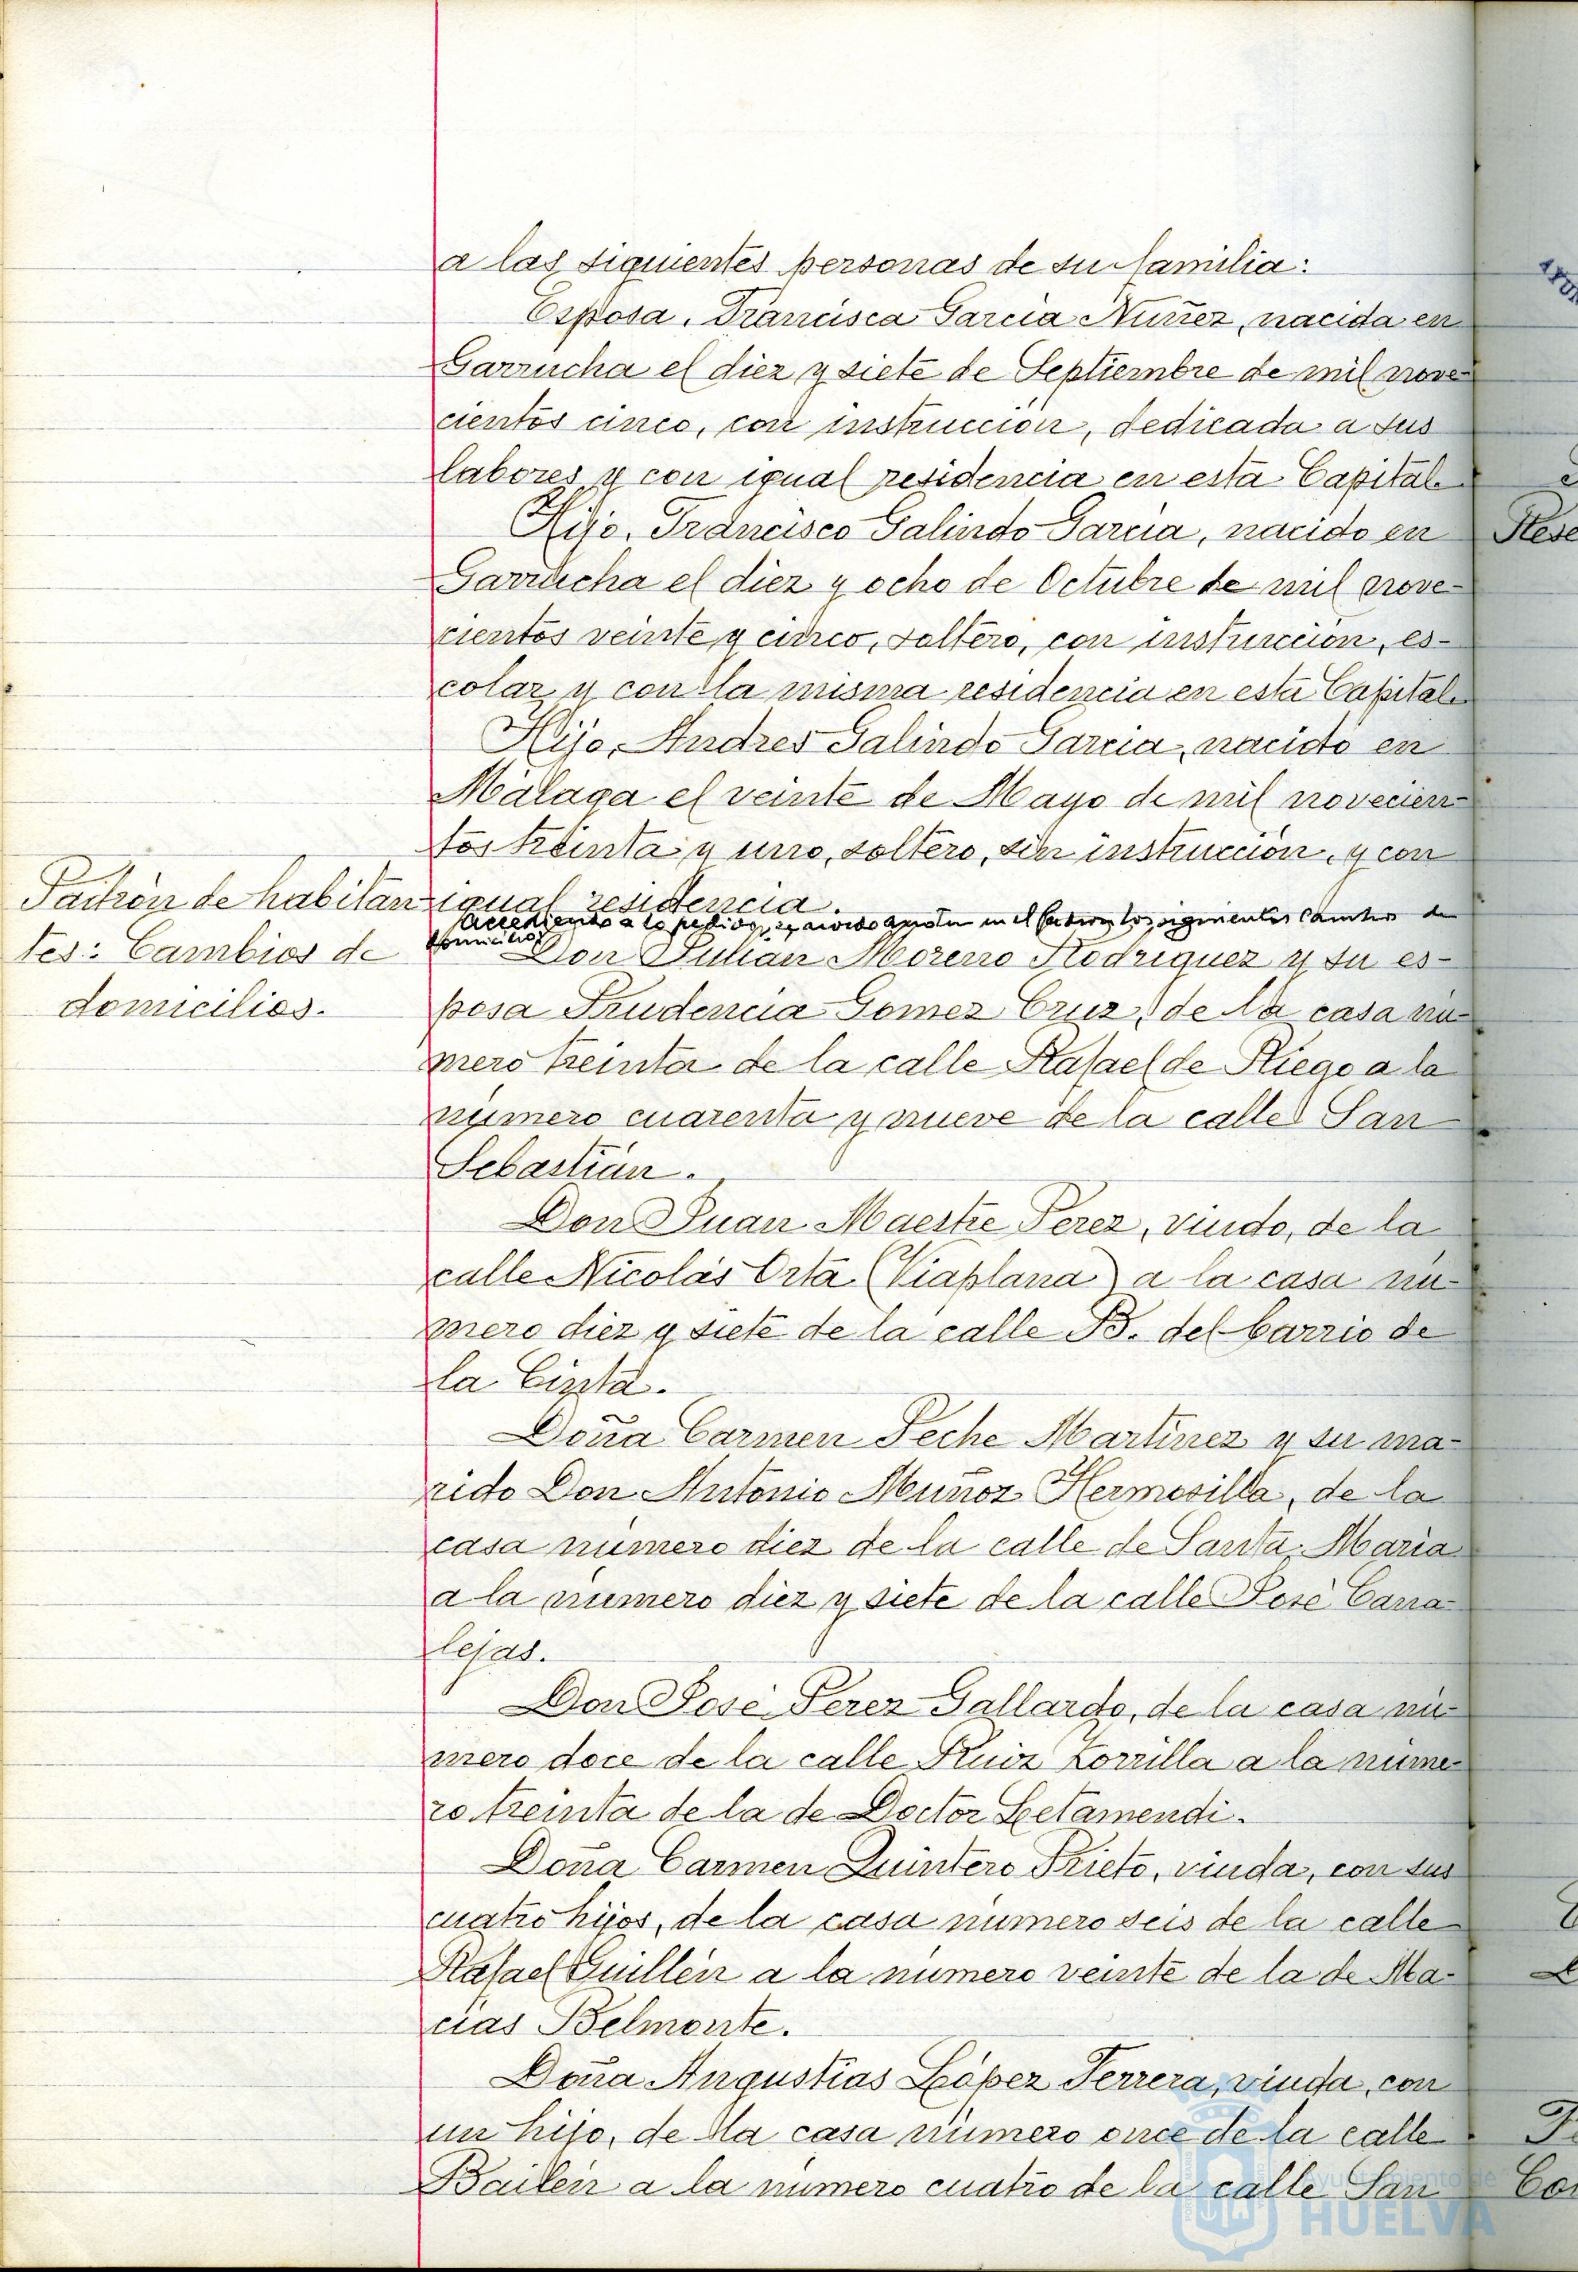 a las siguientes personas de su familia:
Esposa, Francisca Garcia Nuñez, nacida en
Garrucha el diez y siete de Septiembre de mil nove-
cientos cinco, con instrucción, dedicada a sus
labores y con igual residencia en esta Capital.
Hijo, Francisco Galindo Garcia, nacido en
Garrucha el diez y ocho de Octubre de mil nove-
cientos veinte y cinco, soltero, con instrucción, es-
colar y con la misma residencia en esta Capital.
Hijo, Andres Galindo Garcia, nacido en
Málaga el veinte de Mayo de mil novecien-
tos treinta y uno, soltero, sin instrucción, y con
igual residencia.
Padrón de habitan
tes: Cambios de
domicilios.
Accediendo a lo pedido, se acordó anotar en el Padron los siguientes cambios de
domicilio:
Don Julián Moreno Rodriguez y su es-
posa Prudencia Gomez Cruz, de la casa nú-
mero treinta de la calle Rafael de Riego a la
número cuarenta y nueve de la calle San
Sebastián.
Don Juan Maestre Perez, viudo, de la
calle Nicolás Orta (Viaplana) a la casa nú-
mero diez y siete de la calle B. del barrio de
la Cinta.
Doña Carmen Peche Martinez y su ma-
rido Don Antonio Muñoz Hermosilla, de la
casa número diez de la calle de Santa Maria
a la número diez y siete de la calle José Cana-
lejas.
Don José Perez Gallardo, de la casa nú-
mero doce de la calle Ruiz Zorrilla a la núme-
ro treinta de la de Doctor Letamendi.
Doña Carmen Quintero Prieto, viuda, con sus
cuatro hijos, de la casa número seis de la calle
Rafael Guillén a la número veinte de la de Ma-
cias Belmonte.
Doña Angustias López Ferrera, viuda, con
un hijo, de la casa número once de la calle
Bailén a la número cuatro de la calle San
Ayuntamiento de
HUELVA